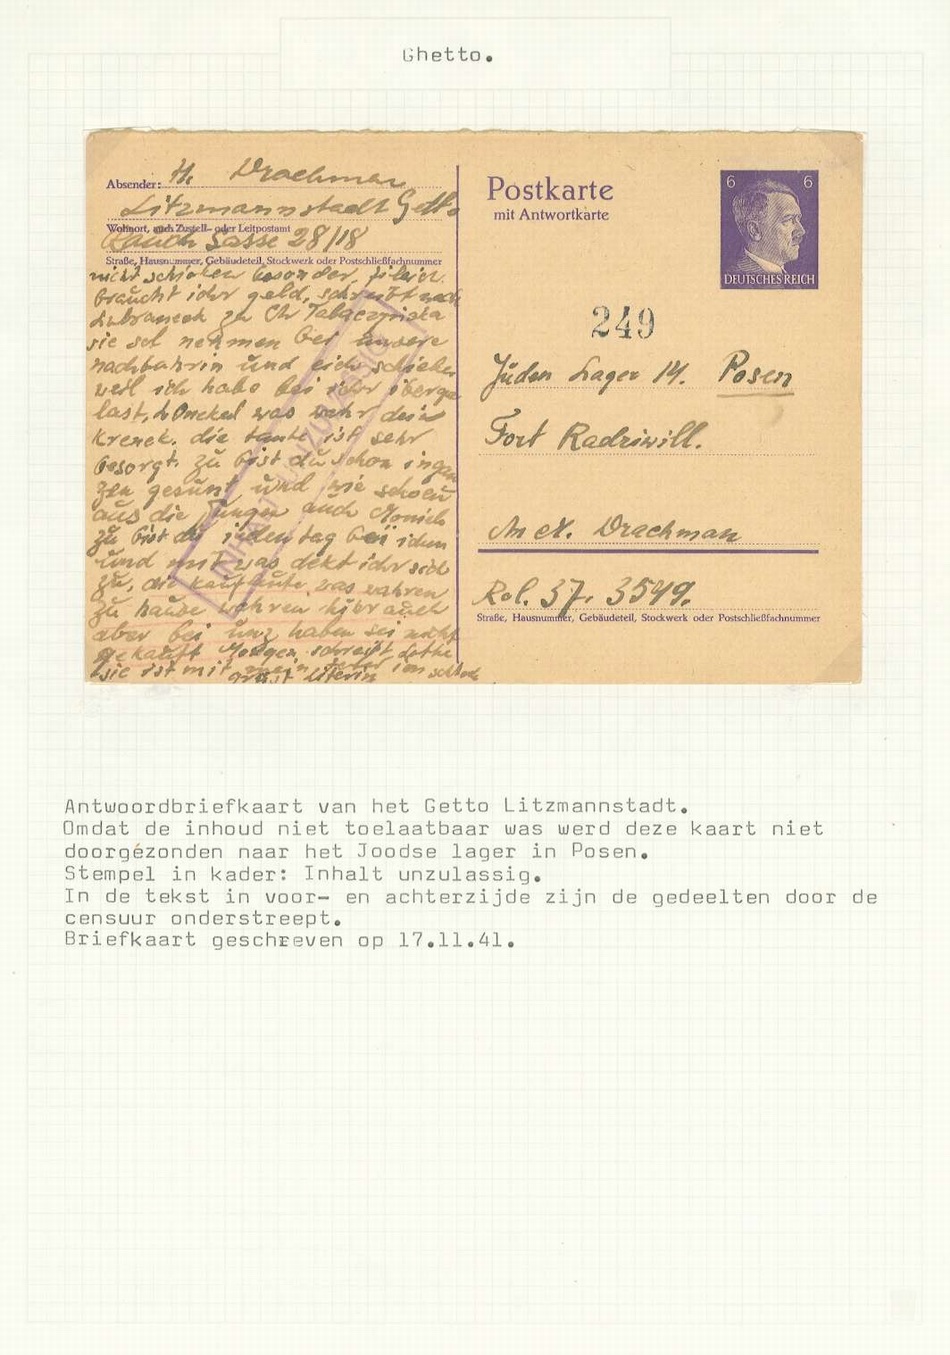 Ghetto.
Absender: H. Drachman
Litzmannstadt Getto
Wohnort, auch Zustell- oder Leitpostamt
Gasse 28/18
Straße, Hausnummer, Gebäudeteil, Stockwerk oder Postschließfachnummer
nicht schieken besonder
braucht ichr geld, schreibt noch
zu Ch Tabaczynska
sie sol nehmen bei unsere
nachbahrin und eich schieken
weil ich habe bei ihr
last, was wahr dein
Krenek. die tante ist sehr
besorgt. zu bist du schon ingan
zen gesunt, und wie
aus die Jungen auch Moniek
zu bist du jeden tag bei ichm
und mit was dekt ichr sich
zu, die kaufleute was wahren
zu hause wohren hier auch
aber bei unz haben sei nicht
gekauft Morgen schreibt
sie ist mit mein
INHALT UNZULÄSSIG
Postkarte
mit Antwortkarte
6 6
DEUTSCHES REICH
249
Juden Lager 14. Posen
Fort Radziwill.
An ex. Drachman
Rel. 37. 3549.
Straße, Hausnummer, Gebäudeteil, Stockwerk oder Postschließfachnummer
Antwoordbriefkaart van het Getto Litzmannstadt.
Omdat de inhoud niet toelaatbaar was werd deze kaart niet
doorgezonden naar het Joodse lager in Posen.
Stempel in kader: Inhalt unzulassig.
In de tekst in voor- en achterzijde zijn de gedeelten door de
censuur onderstreept.
Briefkaart geschreven op 17.11.41.